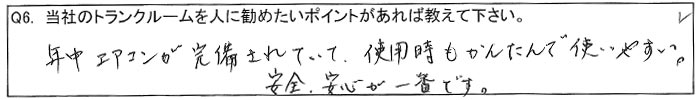 Q6. 当社のトランクルームを人に勧めたいポイントがあれば教えて下さい。
年中エアコンが完備されていて、使用時もかんたんで使いやすい。
安全、安心が一番です。